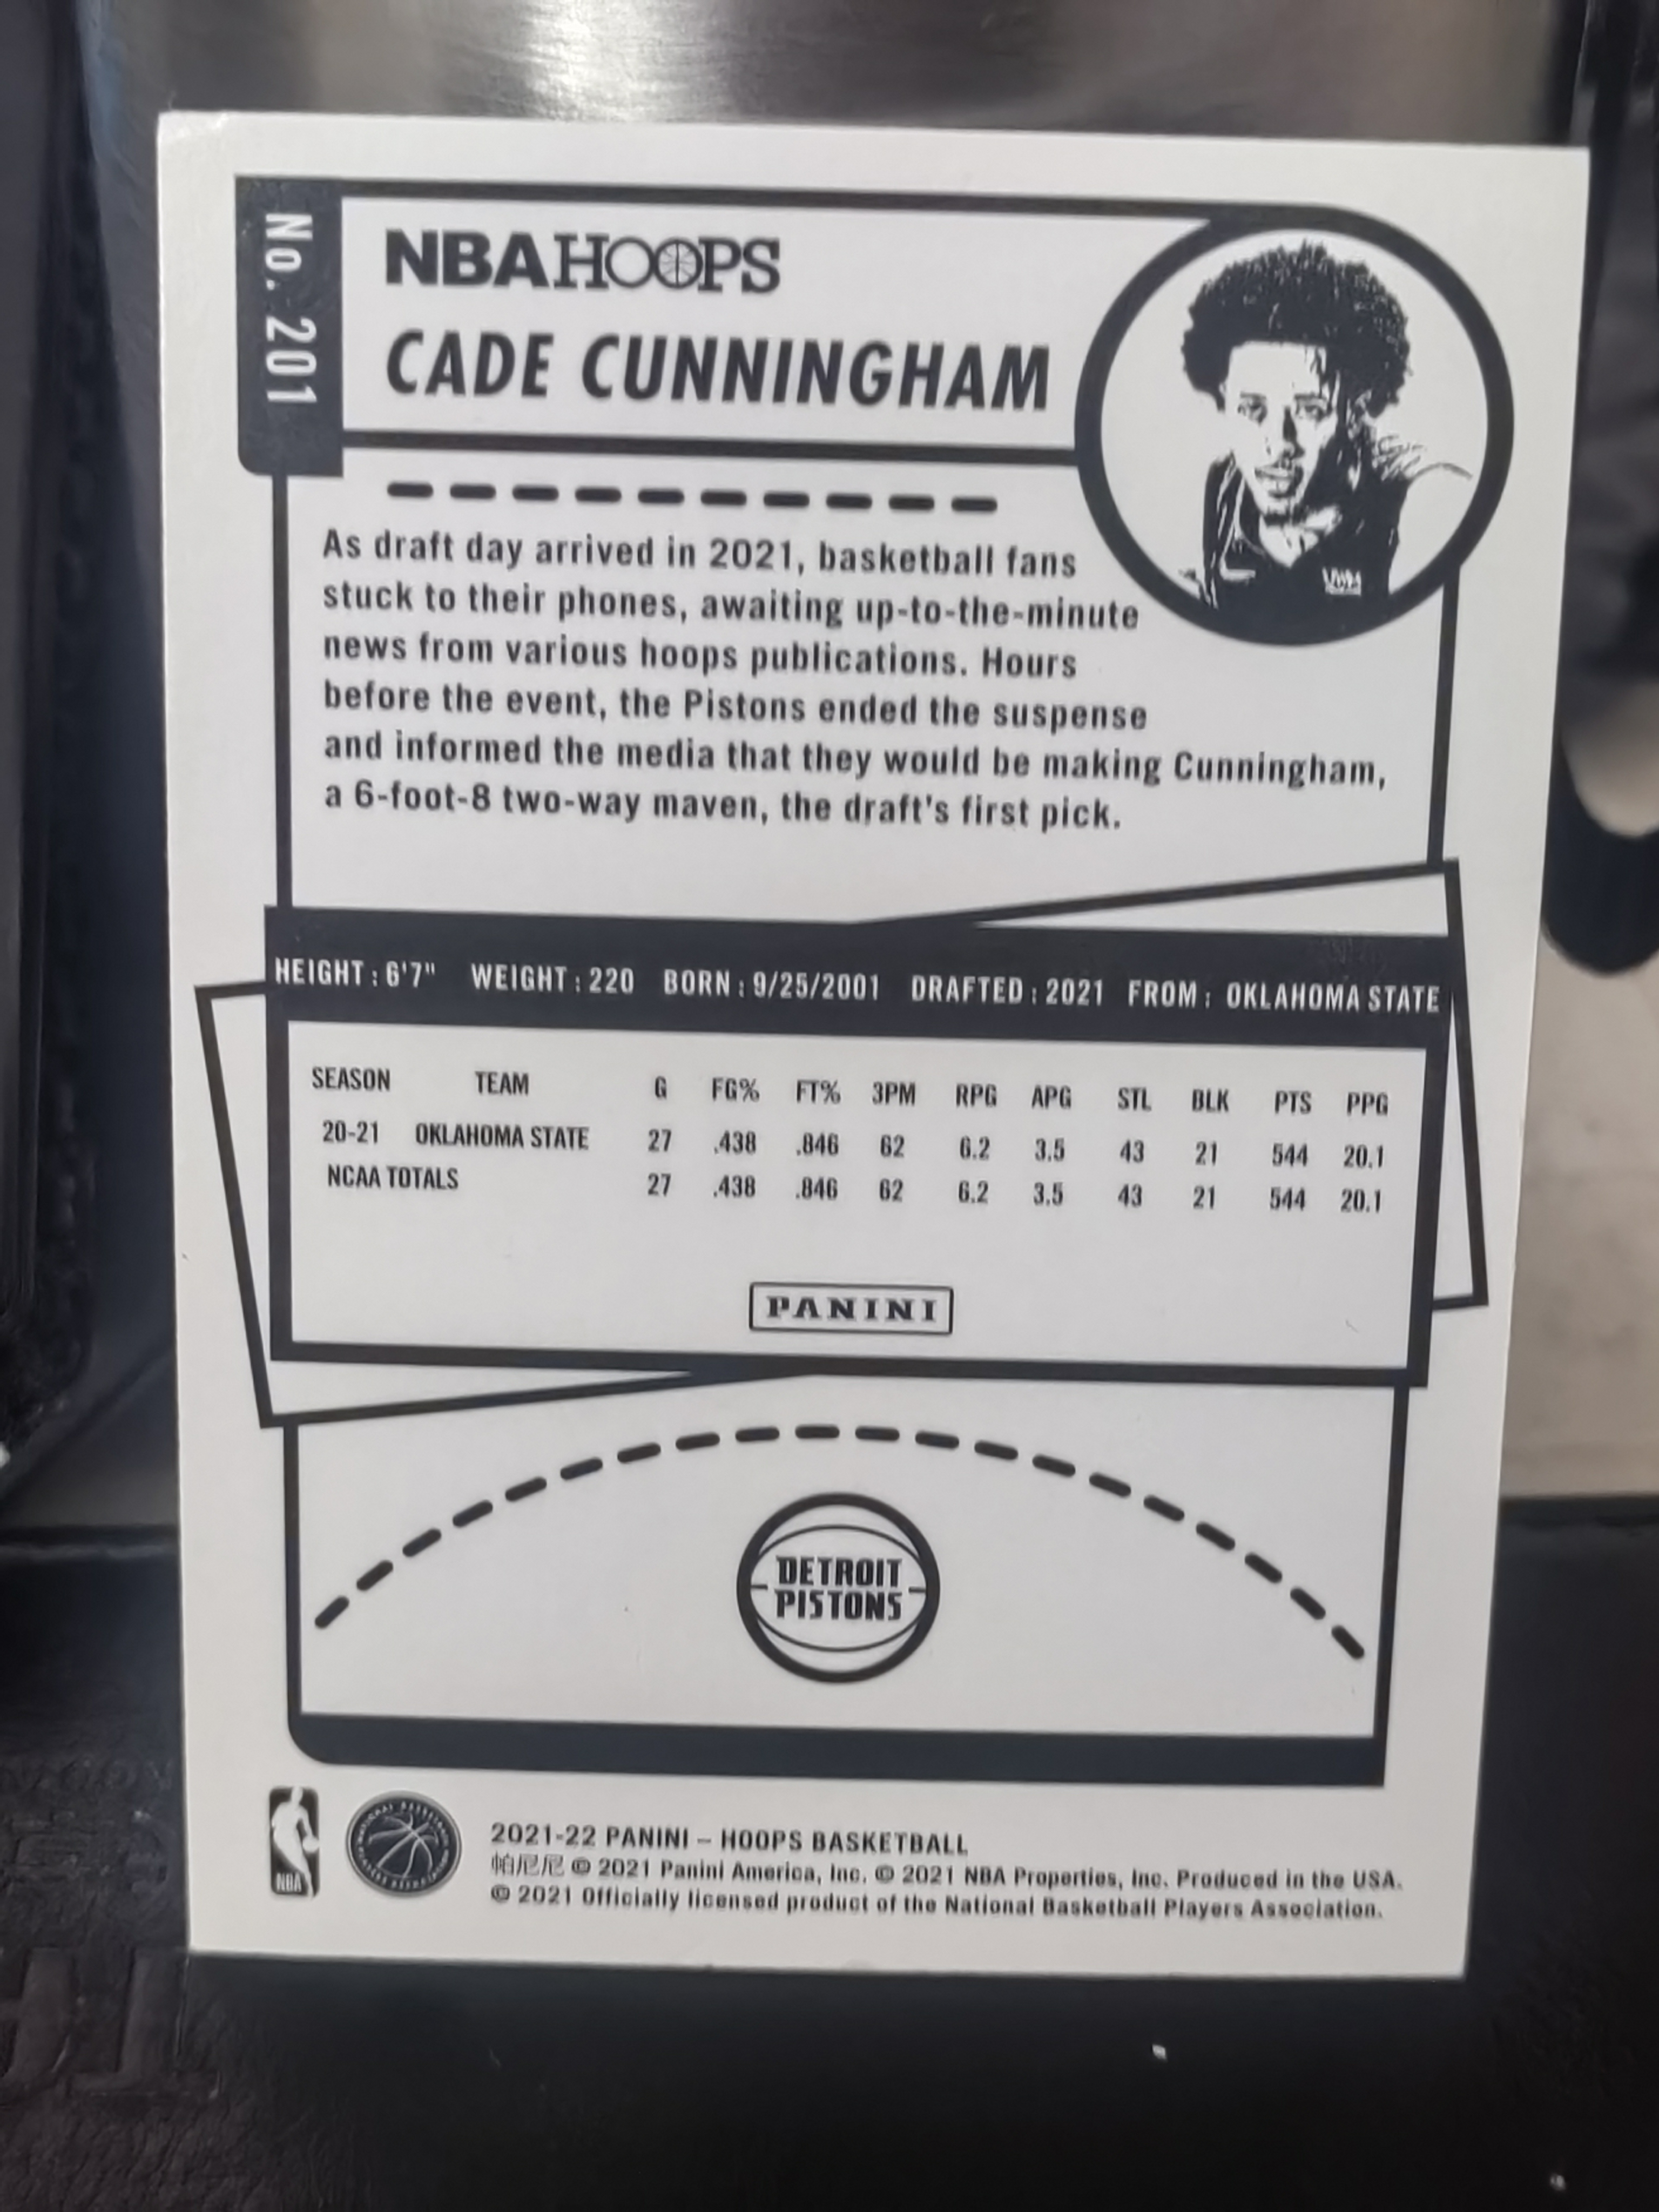 No. 201
NBA HOOPS
CADE CUNNINGHAM
As draft day arrived in 2021, basketball fans
stuck to their phones, awaiting up-to-the-minute
news from various hoops publications. Hours
before the event, the Pistons ended the suspense
and informed the media that they would be making Cunningham,
a 6-foot-8 two-way maven, the draft's first pick.
HEIGHT : 6'7" WEIGHT : 220 BORN : 9/25/2001 DRAFTED : 2021 FROM : OKLAHOMA STATE
SEASON TEAM G FG% FT% 3PM RPG APG STL BLK PTS PPG
20-21 OKLAHOMA STATE 27 .438 .846 62 6.2 3.5 43 21 544 20.1
NCAA TOTALS 27 .438 .846 62 6.2 3.5 43 21 544 20.1
PANINI
DETROIT
PISTONS
NBA
2021-22 PANINI – HOOPS BASKETBALL
帕尼尼 © 2021 Panini America, Inc. © 2021 NBA Properties, Inc. Produced in the USA.
© 2021 Officially licensed product of the National Basketball Players Association.